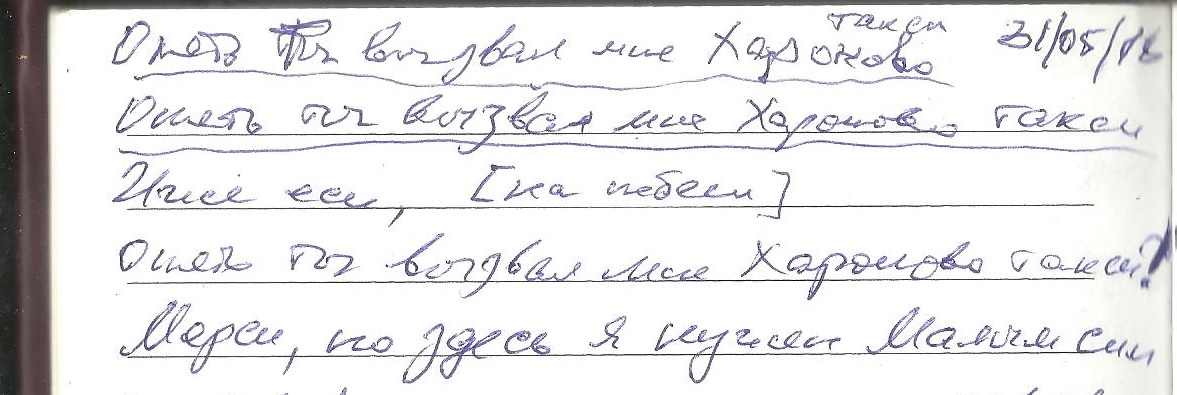 Опять ты вызвал мне Хароново такси 31/05/18
Опять ты вызвал мне Хароново такси
Иже еси, [на небеси]
Опять ты вызвал мне Хароново такси?
Мерси, но здесь я нужен Малым сим